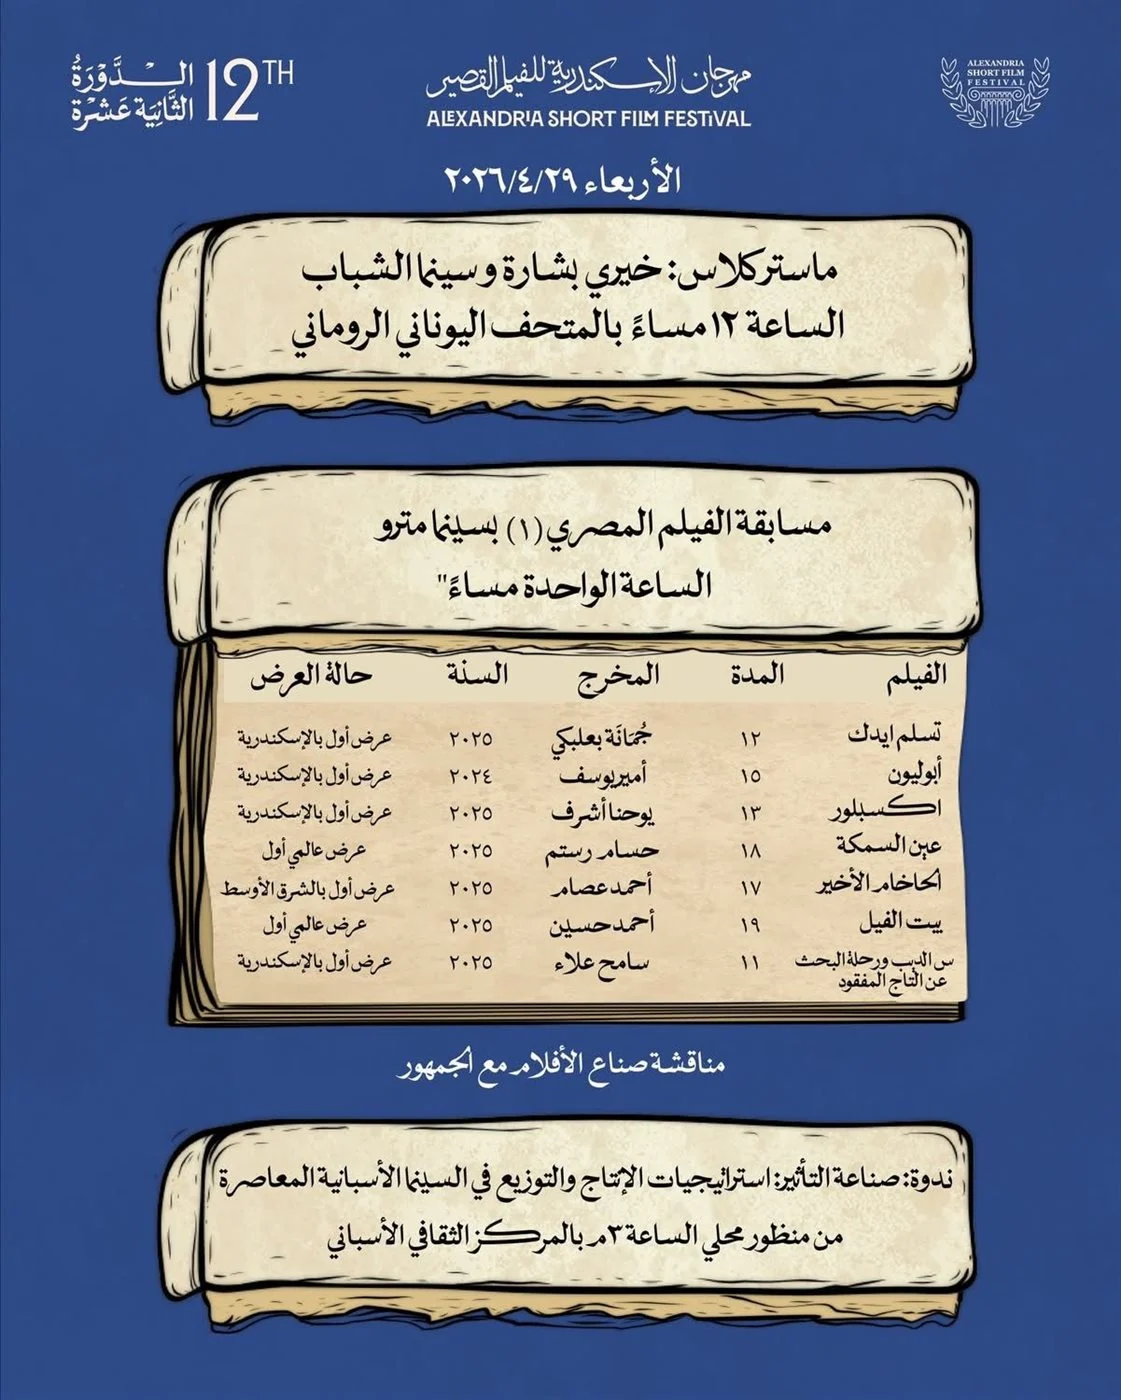 الدَّوْرَةُ
الثَّانِيَة عَشْرَة
12TH
مهرجان الإسكندرية للفيلم القصير
ALEXANDRIA SHORT FILM FESTIVAL
ALEXANDRIA
SHORT FILM
FESTIVAL
الأربعاء ٢٠٢٦/٤/٢٩
ماستركلاس: خيري بشارة وسينما الشباب
الساعة ١٢ مساءً بالمتحف اليوناني الروماني
مسابقة الفيلم المصري (١) بسينما مترو
الساعة الواحدة مساءً"
الفيلم المدة المخرج السنة حالة العرض
تسلم ايدك ١٢ جُمَانَة بعلبكي ٢٠٢٥ عرض أول بالإسكندرية
أبوليون ١٥ أمير يوسف ٢٠٢٤ عرض أول بالإسكندرية
اكسبلور ١٣ يوحنا أشرف ٢٠٢٥ عرض أول بالإسكندرية
عين السمكة ١٨ حسام رستم ٢٠٢٥ عرض عالمي أول
الحاخام الأخير ١٧ أحمد عصام ٢٠٢٥ عرض أول بالشرق الأوسط
بيت الفيل ١٩ أحمد حسين ٢٠٢٥ عرض عالمي أول
س الديب ورحلة البحث ١١ سامح علاء ٢٠٢٥ عرض أول بالإسكندرية
عن التاج المفقود
مناقشة صناع الأفلام مع الجمهور
ندوة: صناعة التأثير: استراتيجيات الإنتاج والتوزيع في السينما الأسبانية المعاصرة
من منظور محلي الساعة ٣م بالمركز الثقافي الأسباني